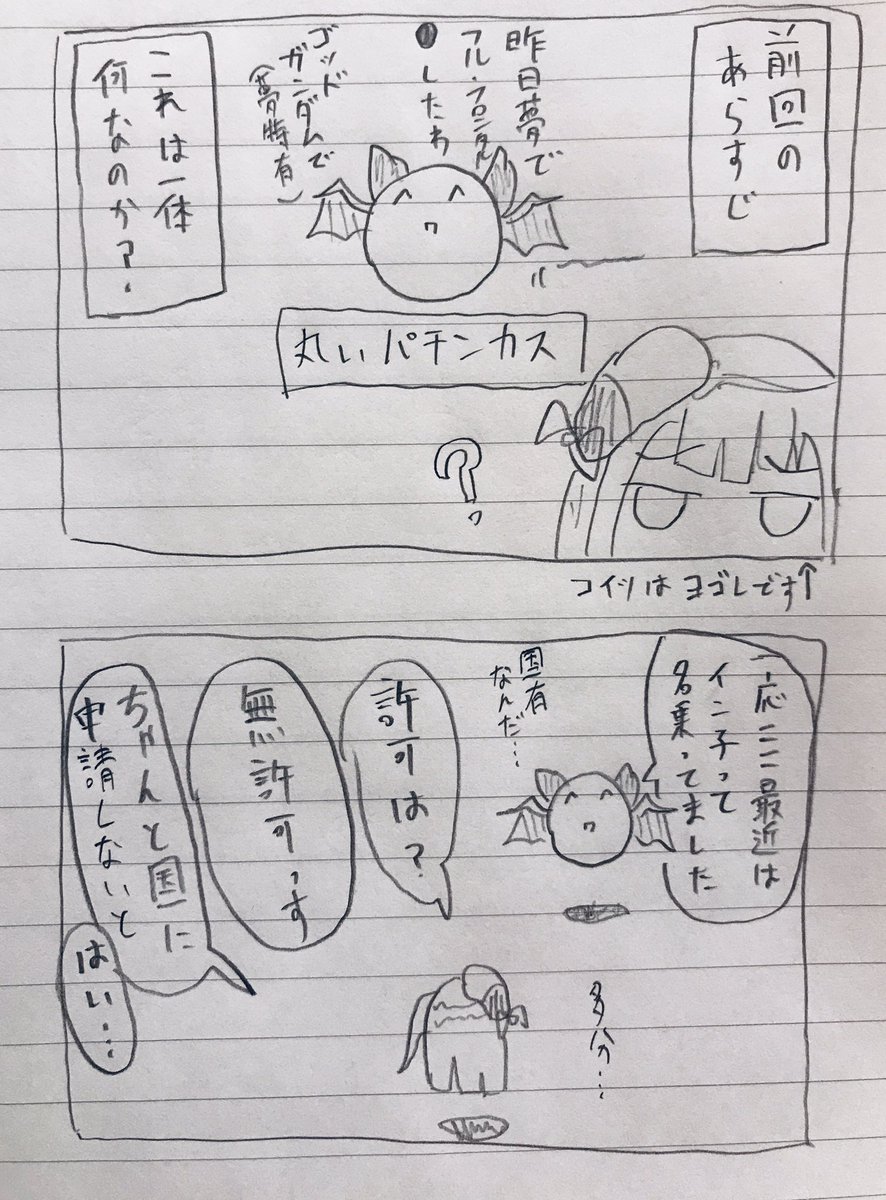 前回の
あらすじ
昨日夢で
フル・フロンタル
●したわ
ゴッド
ガンダムで
(夢特有)
これは一体
何なのか?
丸いパチンカス
?
コイツはヨゴレです↑
一応ここ最近は
インコって
名乗ってました
固有
なんだ…
許可は?
無許可っす
ちゃんと国に
申請しないと
はい…
多分…